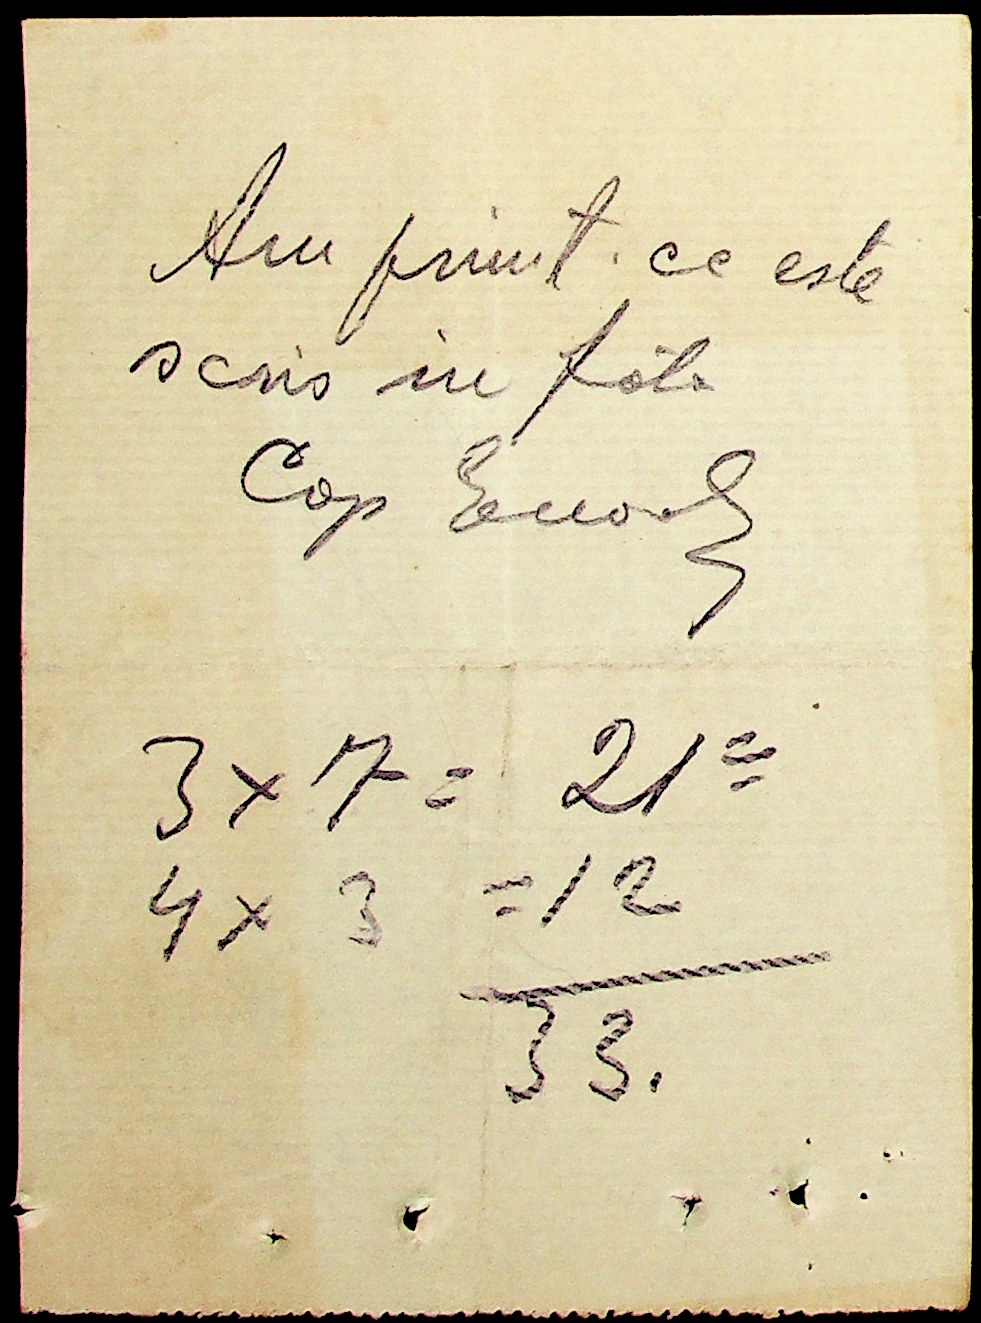 Am primit ce este
scris in față
Cap
3 x 7 = 21 =
4 x 3 = 12
33.